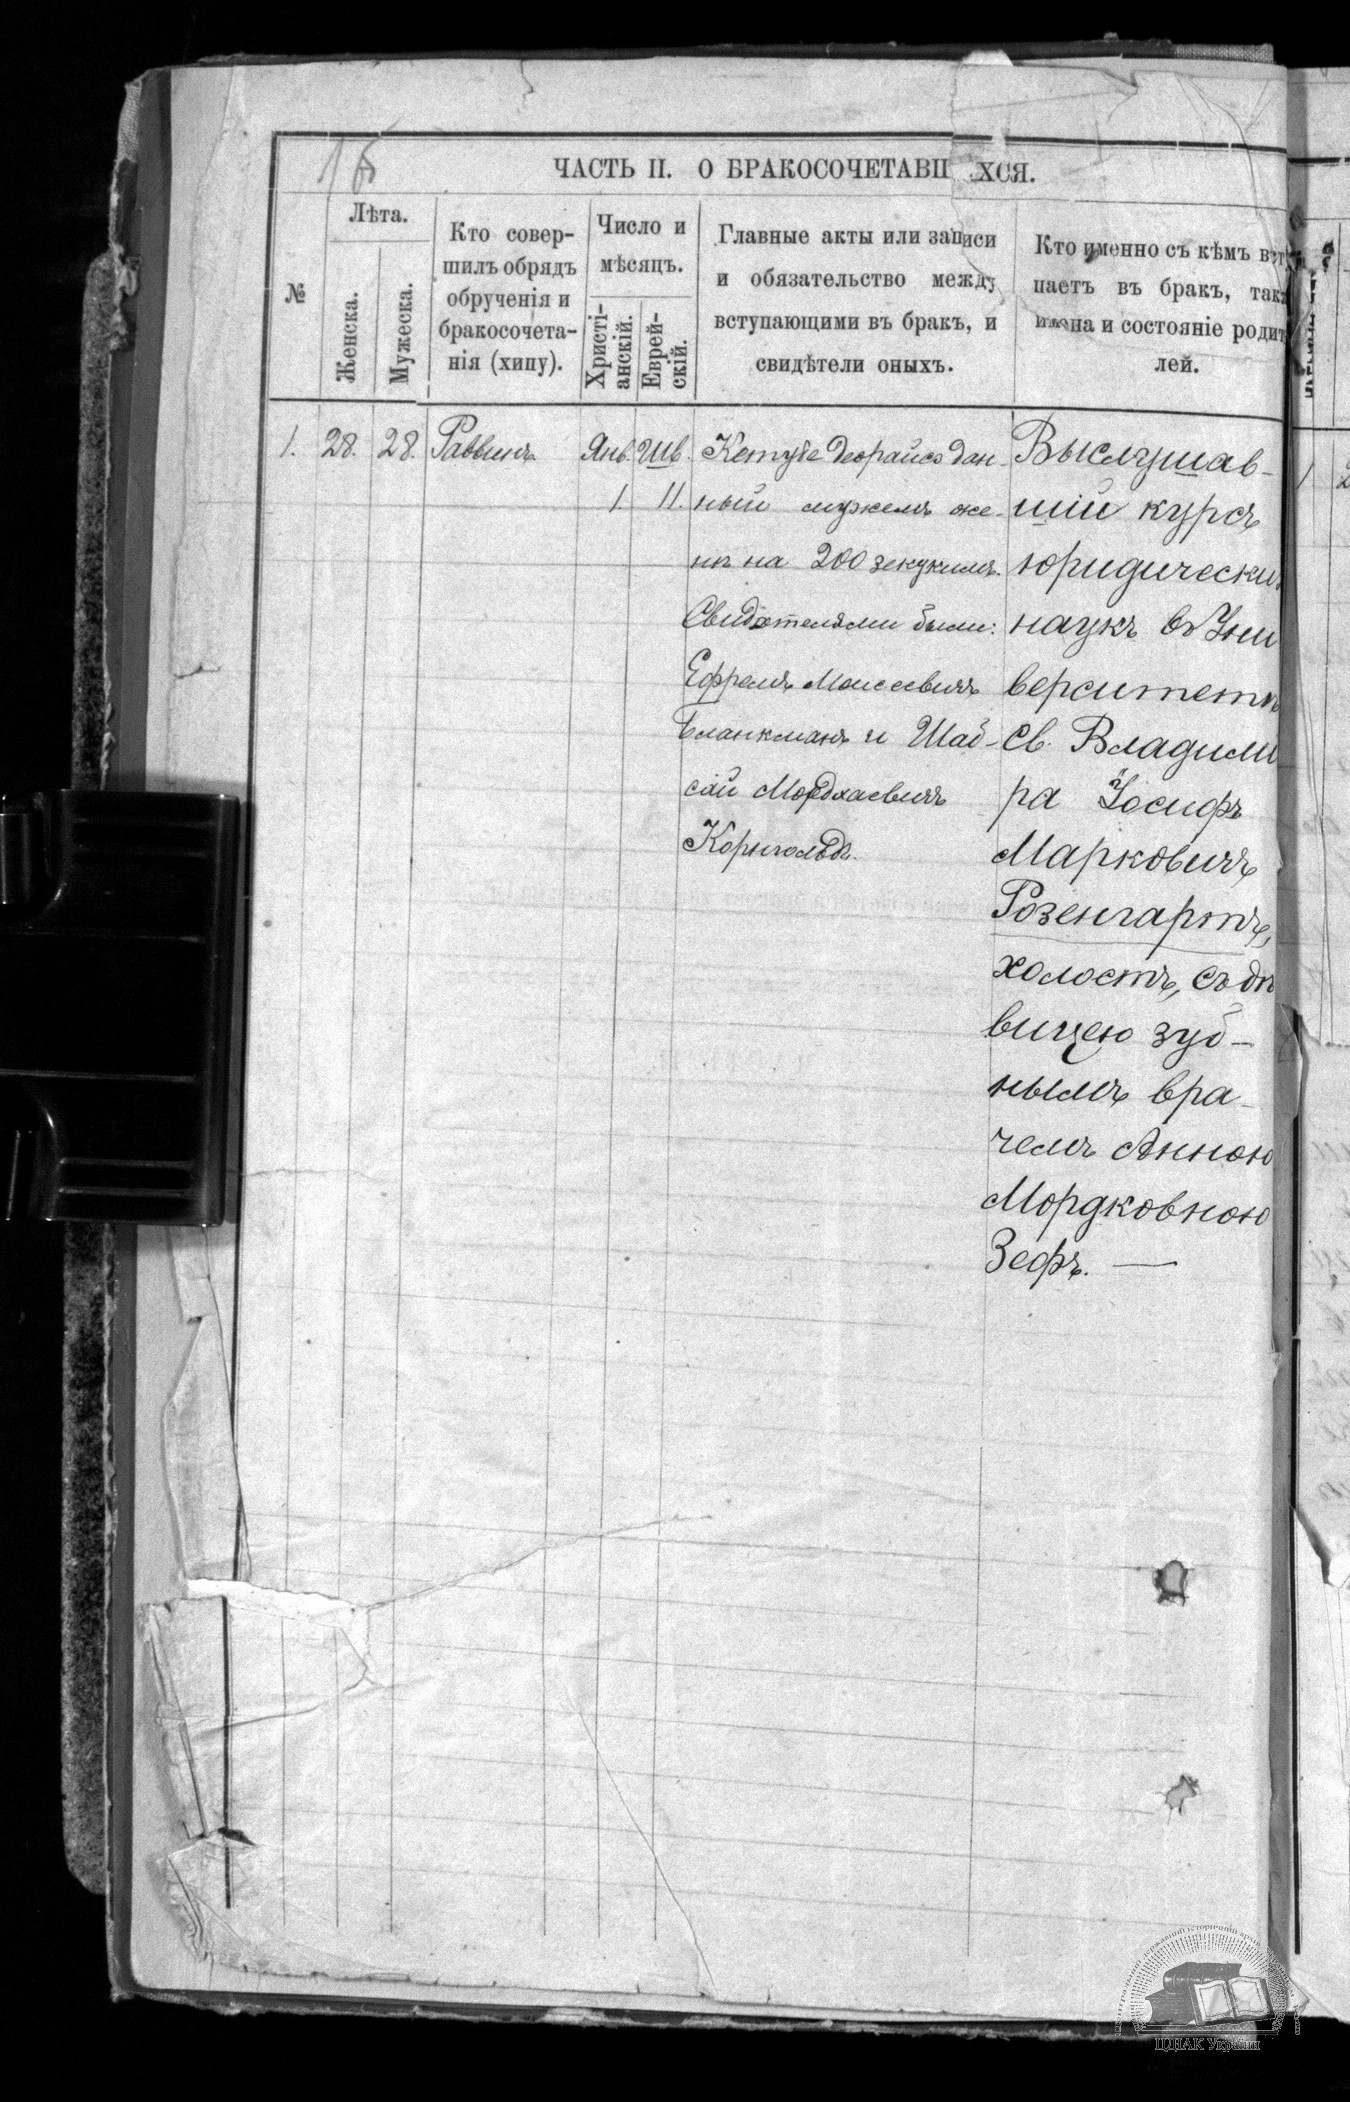 16
ЧАСТЬ II. О БРАКОСОЧЕТАВШ ХСЯ.
№
Лѣта.
Женска.
Мужеска.
Кто совер-
шилъ обрядъ
обрученія и
бракосочета-
нія (хипу).
Число и
мѣсяцъ.
Христі-
анскій.
Еврей-
скій.
Главные акты или записи
и обязательство между
вступающими въ брак, и
свидѣтели оныхъ.
Кто именно съ кѣмъ вст
паетъ въ брак, такж
имена и состояніе родит
лей.
1. 28. 28. Раввинъ Янв. Шв.
1. 11.
Кетубе деорайсо дан-
ный мужемъ же-
нѣ на 200 зекукимъ.
Свидѣтелями были:
Ефремъ Моисеевичъ
Бланкманъ и Шаб-
сай Мордхаевичъ
Корнгольдъ.
Выслушав-
шій курсъ
юридически
наукъ въ Уни
верситетѣ
Св. Владими
ра Іосифъ
Марковичъ
Розенгартъ,
холостъ, съ дѣ
вицею зуб-
нымъ вра-
чемъ Анною
Мордковною
Зефъ. —
ЦДІАК України